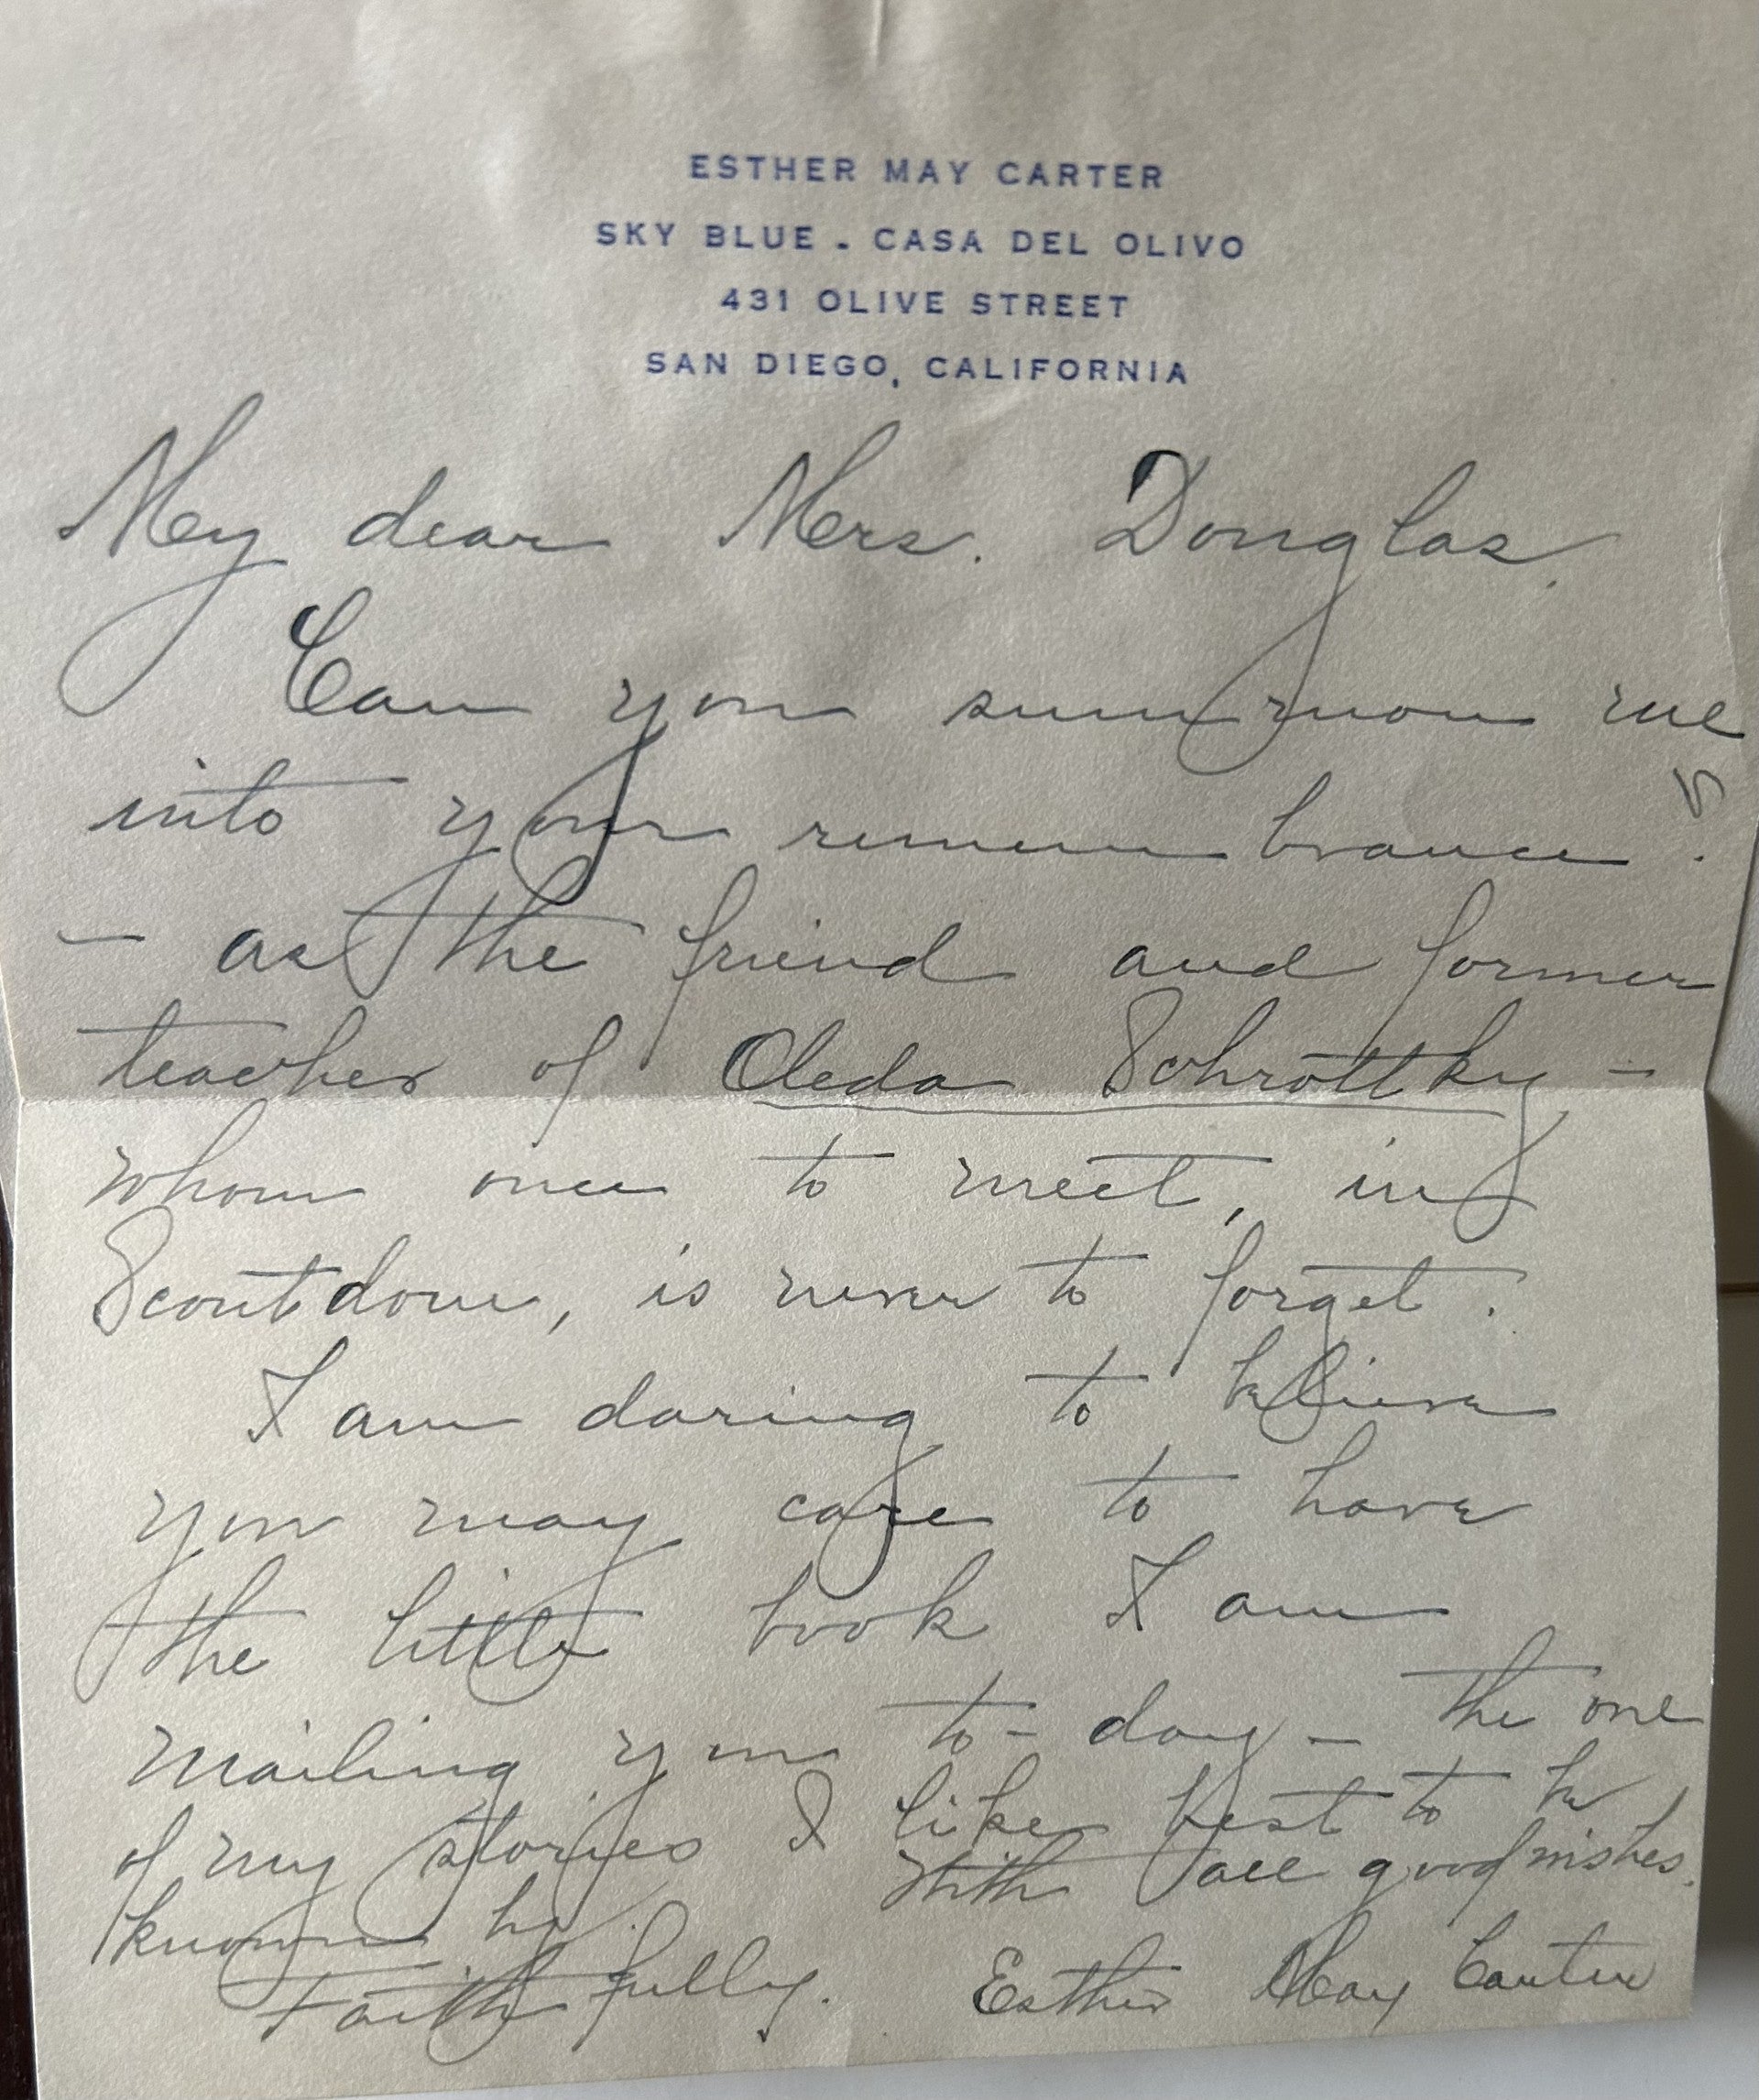 ESTHER MAY CARTER
SKY BLUE - CASA DEL OLIVO
431 OLIVE STREET
SAN DIEGO, CALIFORNIA
My dear Mrs. Douglas.
Can you summon me
into your remembrance?
– as the friend and former
teacher of Oleda Schrottky –
whom once to meet, in
Scoutdom, is never to forget.
I am daring to believe
you may care to have
the little book I am
mailing you to-day – the one
of my stories I like best to be
known by. With all good wishes.
Faithfully. Esther May Carter